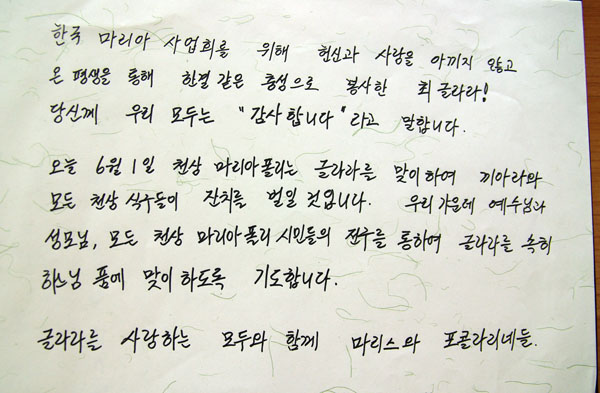 한국 마리아 사업회를 위해 헌신과 사랑을 아끼지 않고
온 평생을 통해 한결같은 충성으로 봉사한 최 글라라!
당신께 우리 모두는 "감사합니다"라고 말합니다.
오늘 6월 1일 천상 마리아폴리는 글라라를 맞이하여 끼아라와
모든 천상 식구들이 잔치를 벌일 것입니다. 우리 가운데 예수님과
성모님, 모든 천상 마리아폴리 시민들의 전구를 통하여 글라라를 속히
하느님 품에 맞이하도록 기도합니다.
글라라를 사랑하는 모두와 함께 마리스와 포콜라리네들.